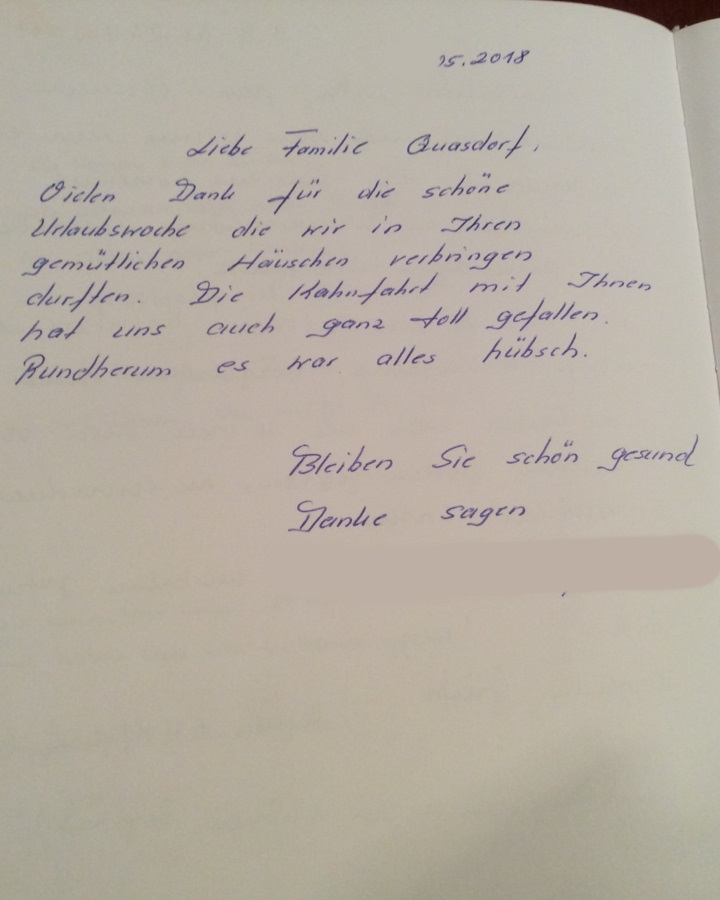 15.2018
Liebe Familie Quasdorf,
Vielen Dank für die schöne
Urlaubswoche die wir in Ihren
gemütlichen Häuschen verbringen
durften. Die Kahnfahrt mit Ihnen
hat uns auch ganz toll gefallen.
Rundherum es war alles hübsch.
Bleiben Sie schön gesund
Danke sagen